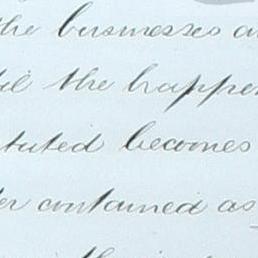 the businesses
til the happen
tuted becomes
er contained as